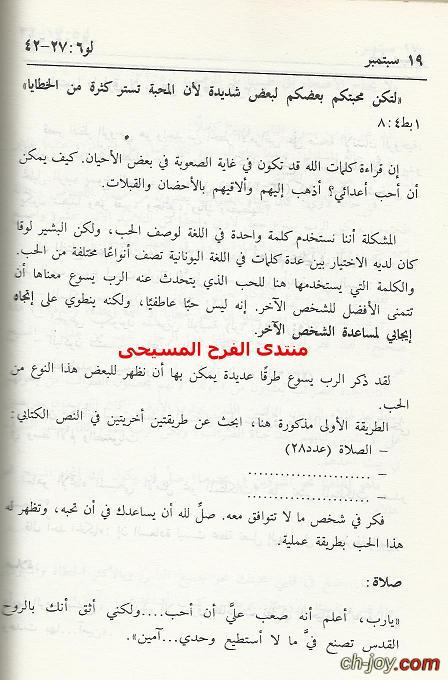 ١٩ سبتمبر لو٦: ٢٧-٤٢
«لتكن محبتكم بعضكم لبعض شديدة لأن المحبة تستر كثرة من الخطايا»
١بط٤: ٨
إن قراءة كلمات الله قد تكون في غاية الصعوبة في بعض الأحيان. كيف يمكن
أن أحب أعدائي؟ أذهب إليهم وألاقيهم بالأحضان والقبلات.
المشكلة أننا نستخدم كلمة واحدة في اللغة لوصف الحب، ولكن البشير لوقا
كان لديه الاختيار بين عدة كلمات في اللغة اليونانية تصف أنواعًا مختلفة من الحب.
والكلمة التي يستخدمها هنا للحب الذي يتحدث عنه الرب يسوع معناها أن
تتمنى الأفضل للشخص الآخر. إنه ليس حبًا عاطفيًا، ولكنه ينطوي على إتجاه
إيجابي لمساعدة الشخص الآخر.
منتدى الفرح المسيحى
لقد ذكر الرب يسوع طرقًا عديدة يمكن بها أن نظهر للبعض هذا النوع من
الحب.
الطريقة الأولى مذكورة هنا، ابحث عن طريقتين أخريتين في النص الكتابي:
– الصلاة (عدد٢٨)
– .........................
– .........................
فكر في شخص ما لا تتوافق معه. صلِّ لله أن يساعدك في أن تحبه، وتظهر له
هذا الحب بطريقة عملية.
صلاة:
«يارب، أعلم أنه صعب عليَّ أن أحب....ولكني أثق أنك بالروح
القدس تصنع فيَّ ما لا أستطيع وحدي...آمين».
ch-joy.com